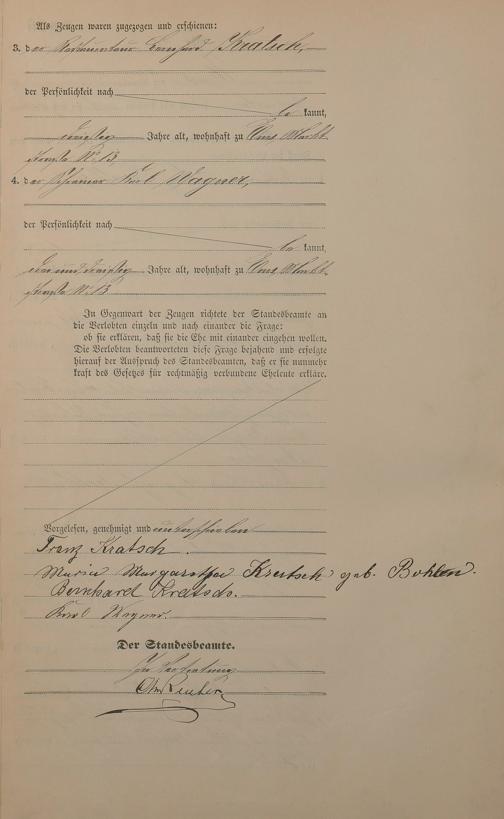 Als Zeugen waren zugezogen und erschienen:
3. der Bernhard Kratsch,
der Persönlichkeit nach
be kannt,
Jahre alt, wohnhaft zu
straße No 13
4. der Karl Wagner,
der Persönlichkeit nach
be kannt,
Jahre alt, wohnhaft zu
straße No 13
In Gegenwart der Zeugen richtete der Standesbeamte an
die Verlobten einzeln und nach einander die Frage:
ob sie erklären, daß sie die Ehe mit einander eingehen wollen.
Die Verlobten beantworteten diese Frage bejahend und erfolgte
hierauf der Ausspruch des Standesbeamten, daß er sie nunmehr
kraft des Gesetzes für rechtmäßig verbundene Eheleute erkläre.
Vorgelesen, genehmigt und unterschrieben
Franz Kratsch.
Maria Margaretha Kratsch geb. Bohlen.
Bernhard Kratsch.
Karl Wagner.
Der Standesbeamte.
In Vertretung